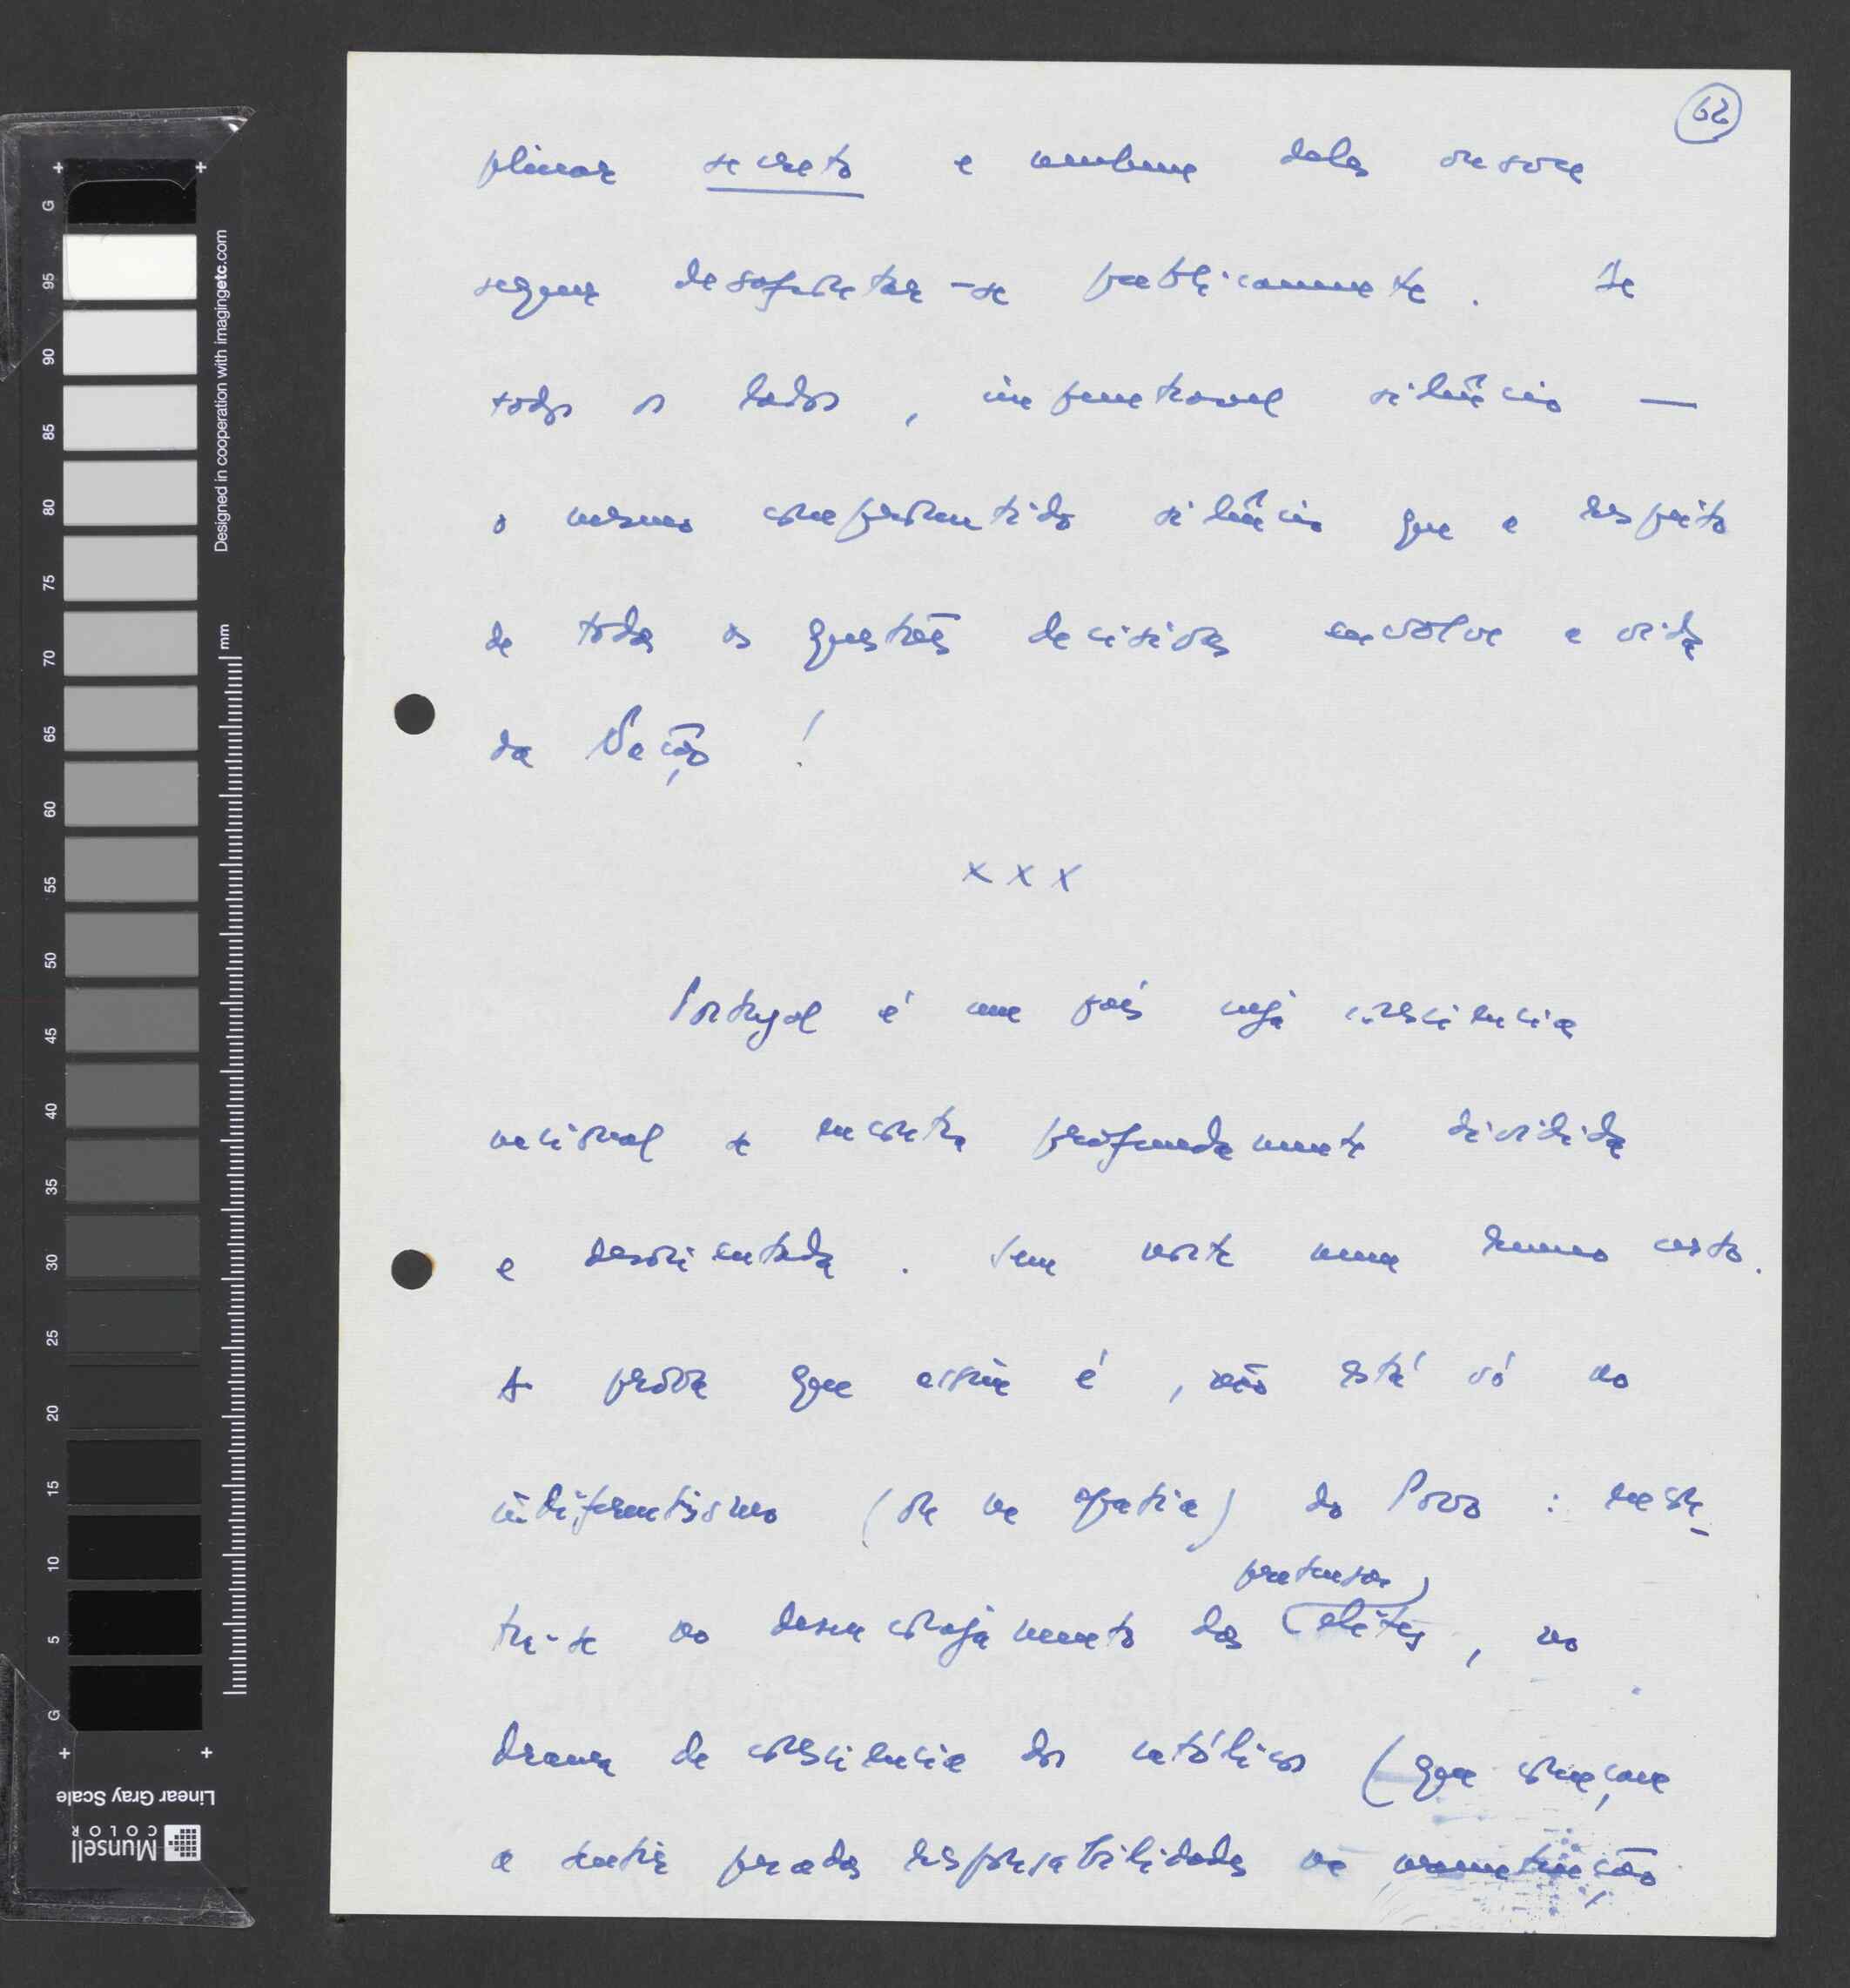 62
plinar secreto e nenhum deles ousou
sequer desafrontar-se publicamente. De
todos os lados, impenetravel silêncio —
o mesmo comprometido silêncio que a respeito
de todas as questões decisivas envolve a vida
da Nação!
x x x
Portugal é um país cuja consciencia
nacional se encontra profundamente dividida
e desorientada. Sem norte nem rumo certo.
A prova que assim é, não está só no
indiferentismo (ou na apatia) do Povo:
pretensas
tra-se no desencorajamento das (elites), no
drama de consciencia dos católicos (que começam
a sentir pesadas responsabilidades na
Designed in cooperation with imagingetc.com
mm
G 95 90 85 80 75 70 65 60 55 50 45 40 35 30 25 20 15 10 5 G
Linear Gray Scale
Munsell
COLOR